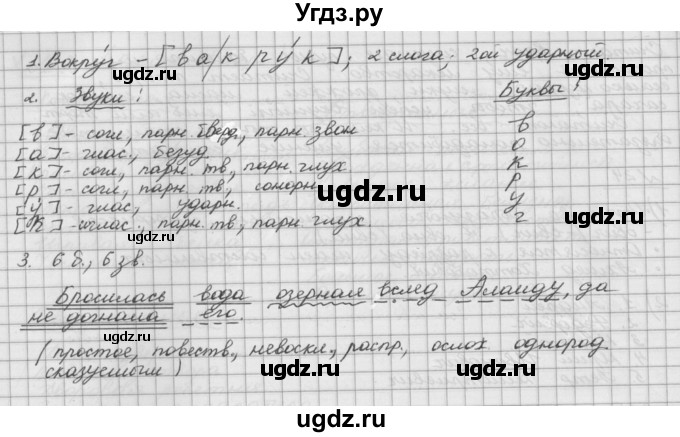 Угдз.ру
1. Вокру́г – [ва/кру́к]; 2 слога; 2ой ударный
2. Звуки: Буквы:
[в] – согл, парн. тверд, парн. звон в
[а] – глас, безуд о
[к] – согл, парн. тв, парн. глух к
[р] – согл, парн. тв, сонорн р
[у́] – глас, ударн. у
[к] – соглас., парн. тв, парн. глух. г
3. 6 б., 6 зв.
Бросилась вода озерная вслед Алаиду, да
не догнала его.
(простое, повеств., невоскл., распр., ослож однород.
сказуемыми)
ugdz.ru
ugdz.ru
ugdz.ru
ugdz.ru
ugdz.ru
ugdz.ru
ugdz.ru
ugdz.ru
ugdz.ru